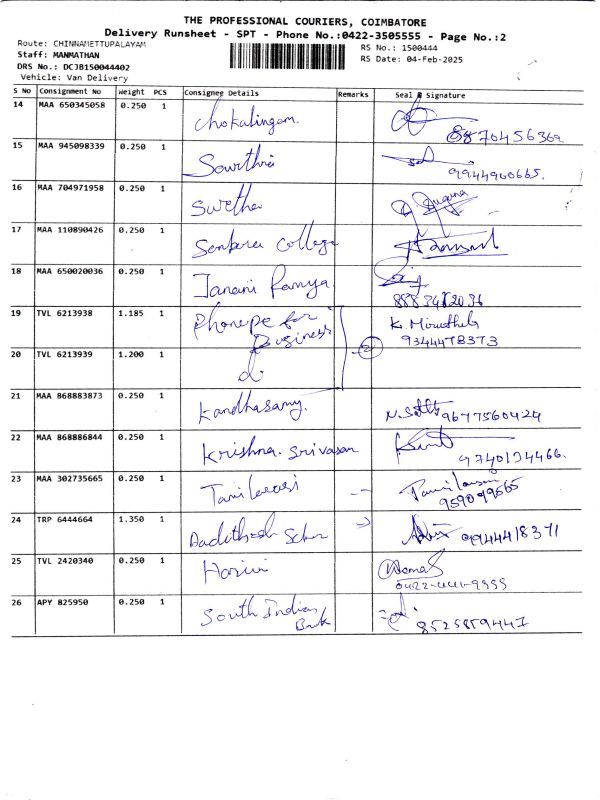 THE PROFESSIONAL COURIERS, COIMBATORE
Delivery Runsheet - SPT - Phone No.:0422-3505555 - Page No.:2
Route: CHINNAMETTUPALAYAM
Staff: MANMATHAN
DRS No.: DCJB150044402
Vehicle: Van Delivery
RS No.: 1500444
RS Date: 04-Feb-2025
S No Consignment No Weight PCS Consignee Details Remarks Seal & Signature
14 MAA 650345058 0.250 1 Chokalingam. 8870456369
15 MAA 945098339 0.250 1 Sowthri 9944900665.
16 MAA 704971958 0.250 1 Swetha
17 MAA 110890426 0.250 1 Sankara College
18 MAA 650020036 0.250 1 Janani Ramya.
19 TVL 6213938 1.185 1 Phonepe for Business 2 K. Miruthula 9344478373
20 TVL 6213939 1.200 1 d.
21 MAA 868883873 0.250 1 Kandhasamy. 9677560424
22 MAA 868886844 0.250 1 Krishna. Srivasan 9740134466.
23 MAA 302735665 0.250 1 Tamilarasi
24 TRP 6444664 1.350 1 9944418371
25 TVL 2420340 0.250 1 Harini
26 APY 825950 0.250 1 South Indian Bank 8525859447